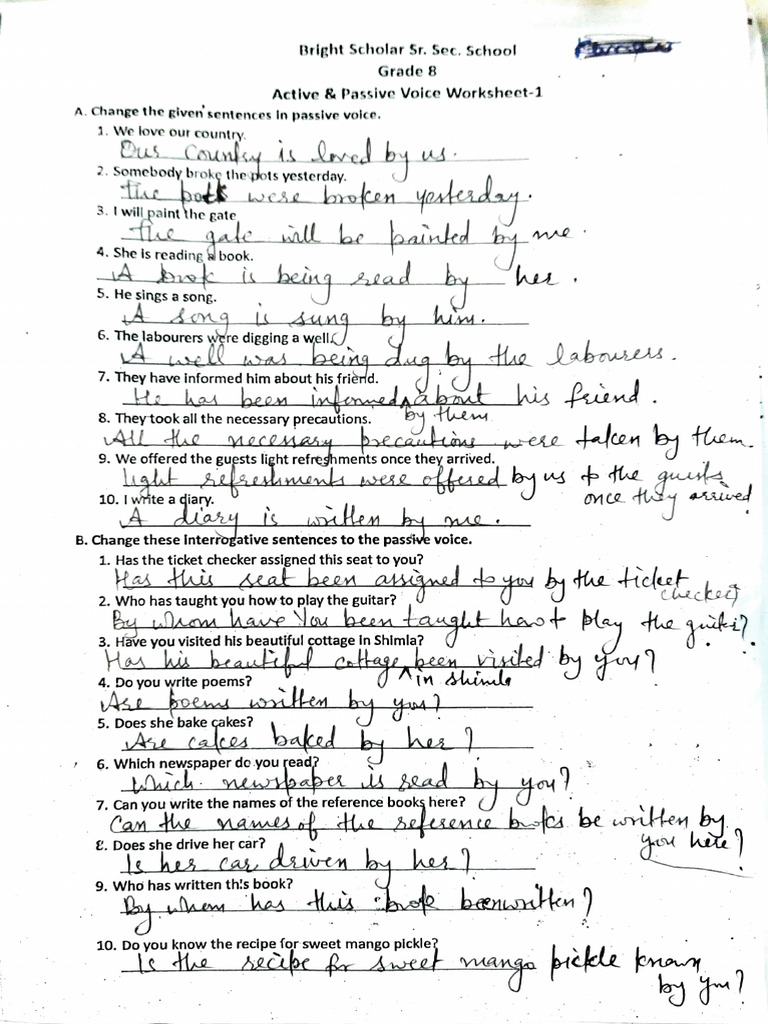 Bright Scholar Sr. Sec. School
Grade 8
Active & Passive Voice Worksheet-1
A. Change the given sentences in passive voice.
1. We love our country.
Our Country is loved by us.
2. Somebody broke the pots yesterday.
The pots were broken yesterday.
3. I will paint the gate
The gate will be painted by me.
4. She is reading a book.
A book is being read by her.
5. He sings a song.
A song is sung by him.
6. The labourers were digging a well.
A well was being dug by the labourers.
7. They have informed him about his friend.
He has been informed about his friend.
by them
8. They took all the necessary precautions.
All the necessary precautions were taken by them.
9. We offered the guests light refreshments once they arrived.
Light refreshments were offered by us to the guests
once they arrived
10. I write a diary.
A diary is written by me.
B. Change these Interrogative sentences to the passive voice.
1. Has the ticket checker assigned this seat to you?
Has this seat been assigned to you by the ticket
checker?
2. Who has taught you how to play the guitar?
By whom have you been taught how to play the
3. Have you visited his beautiful cottage in Shimla?
Has his beautiful cottage been visited by you?
in Shimla
4. Do you write poems?
Are poems written by you?
5. Does she bake cakes?
Are cakes baked by her?
6. Which newspaper do you read?
Which newspaper is read by you?
7. Can you write the names of the reference books here?
Can the names of the reference books be written by
you here?
8. Does she drive her car?
Is her car driven by her?
9. Who has written this book?
By whom has this book been written?
10. Do you know the recipe for sweet mango pickle?
Is the recipe for sweet mango pickle known
by you?